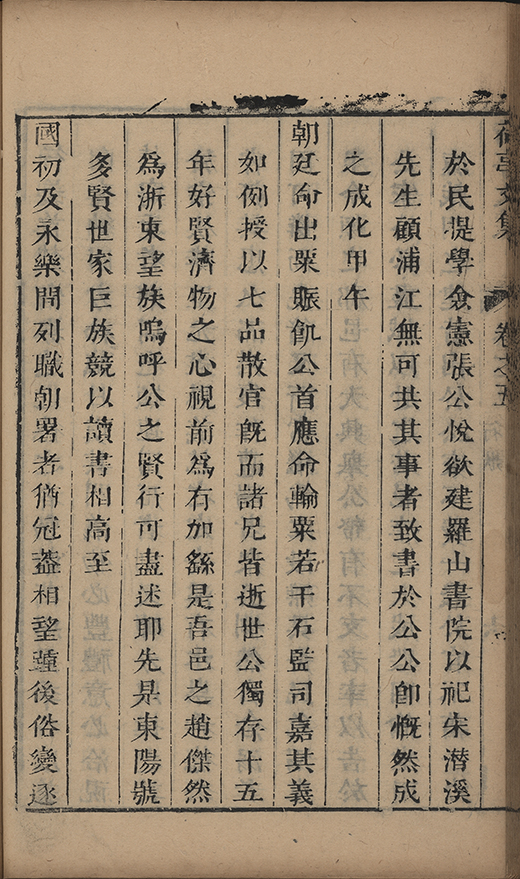 荷亭文集
卷之五
行狀
於民提學僉憲張公悅欲建羅山書院以祀宋潛溪
先生顧浦江無可共其事者致書於公公卽慨然成
之成化甲午
朝廷命出粟賑飢公首應命輸粟若干石監司嘉其義
如例授以七品散官旣而諸兄皆逝世公獨存十五
年好賢濟物之心視前爲有加繇是吾邑之趙傑然
爲浙東望族嗚呼公之賢行可盡述耶先是東陽號
多賢世家巨族競以讀書相高至
國初及永樂間列職朝署者猶冠葢相望薳後俗變逐